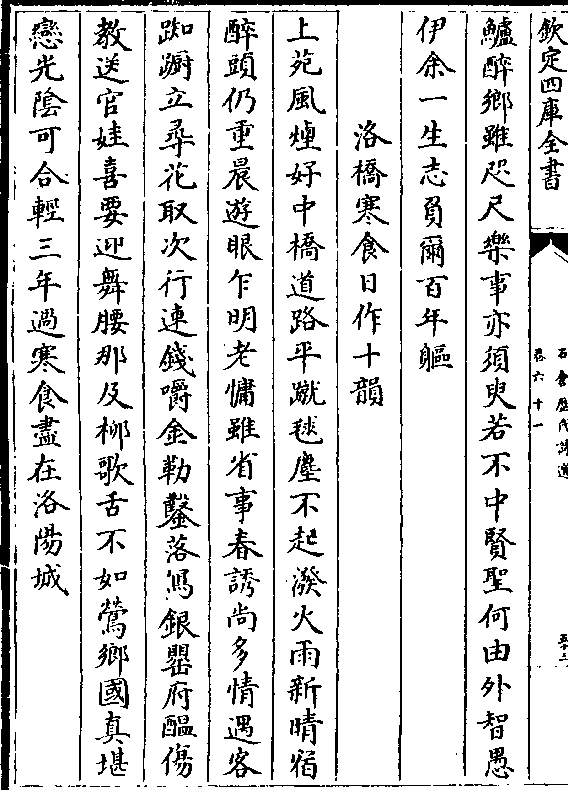 欽定四庫全書
石倉歷代詩選
卷六十一
鱸醉鄉雖咫尺樂事亦須臾若不中賢聖何由外智愚
伊余一生志負爾百年軀
洛橋寒食日作十韻
上苑風煙好中橋道路平蹴毬塵不起潑火雨新晴宿
醉頭仍重晨遊眼乍明老慵雖省事春誘尚多情遇客
踟蹰立尋花取次行連錢嚼金勒鑿落寫銀罌府醞傷
教送官娃喜要迎舞腰那及栁歌舌不如鶯鄉國真堪
戀光陰可合輕三年過寒食盡在洛陽城